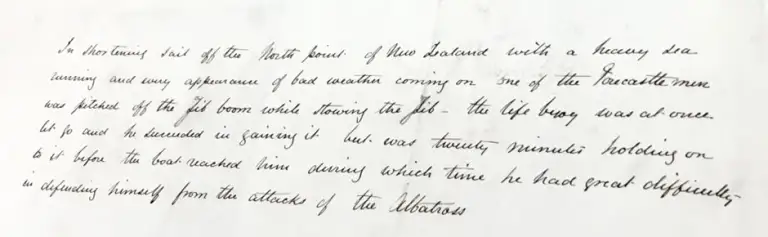 In shortening sail off the North point of New Zealand with a heavy sea
running and every appearance of bad weather coming on one of the Forecastle men
was pitched off the Jib boom while stowing the Jib - the life buoy was at once
let go and he succeeded in gaining it but was twenty minutes holding on
to it before the boat reached him during which time he had great difficulty
in defending himself from the attacks of the Albatross